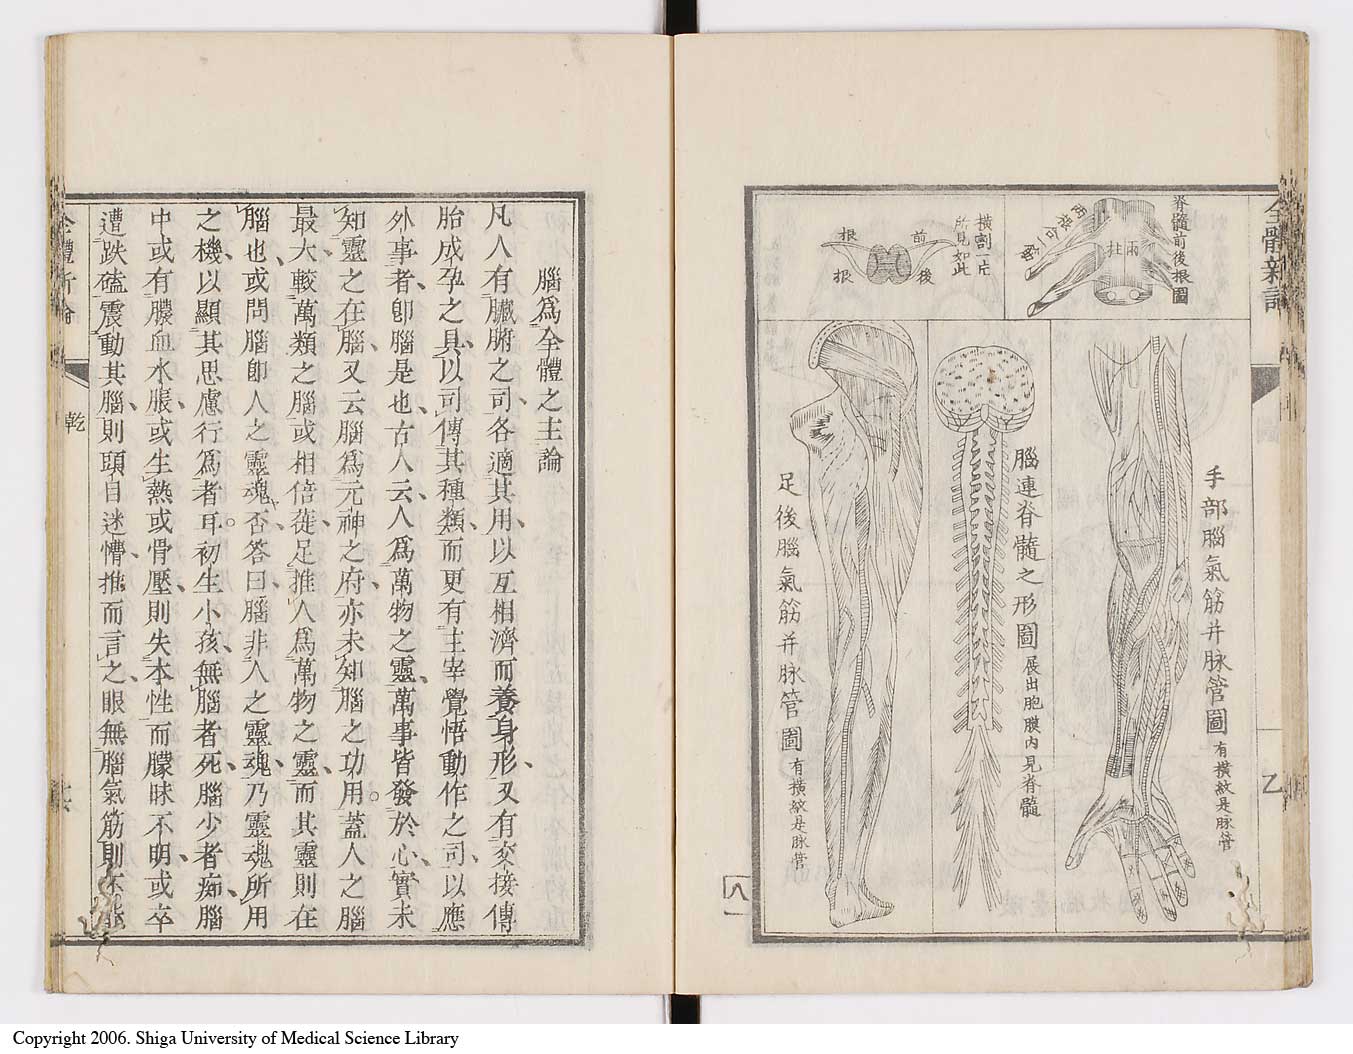 全體新論
乙
脊髓前後根圖
兩柱
兩根合一
橫割一片
所見如此
前
後
根
根
手部腦氣筋并脉管圖
有橫紋是脉管
腦連脊髓之形圖
展出胞膜內見脊髓
足後腦氣筋并脉管圖
有橫紋是脉管
腦爲全體之主論
凡人有臟腑之司各適其用以互相濟而養身形又有交接傳
胎成孕之具以司傳其種類而更有主宰覺悟動作之司以應
外事者卽腦是也古人云人爲萬物之靈萬事皆發於心實未
知靈之在腦又云腦爲元神之府亦未知腦之功用。蓋人之腦
最大較萬類之腦或相倍蓰足推人爲萬物之靈而其靈則在
腦也或問腦卽人之靈魂否答曰腦非人之靈魂乃靈魂所用
之機以顯其思慮行爲者耳。初生小孩無腦者死腦少者痴腦
中或有膿血水脹或生熱或骨壓則失本性而朦昧不明或卒
遭跌磕震動其腦則頭目迷懵推而言之眼無腦氣筋則不能
全體新論
乾
Copyright 2006. Shiga University of Medical Science Library